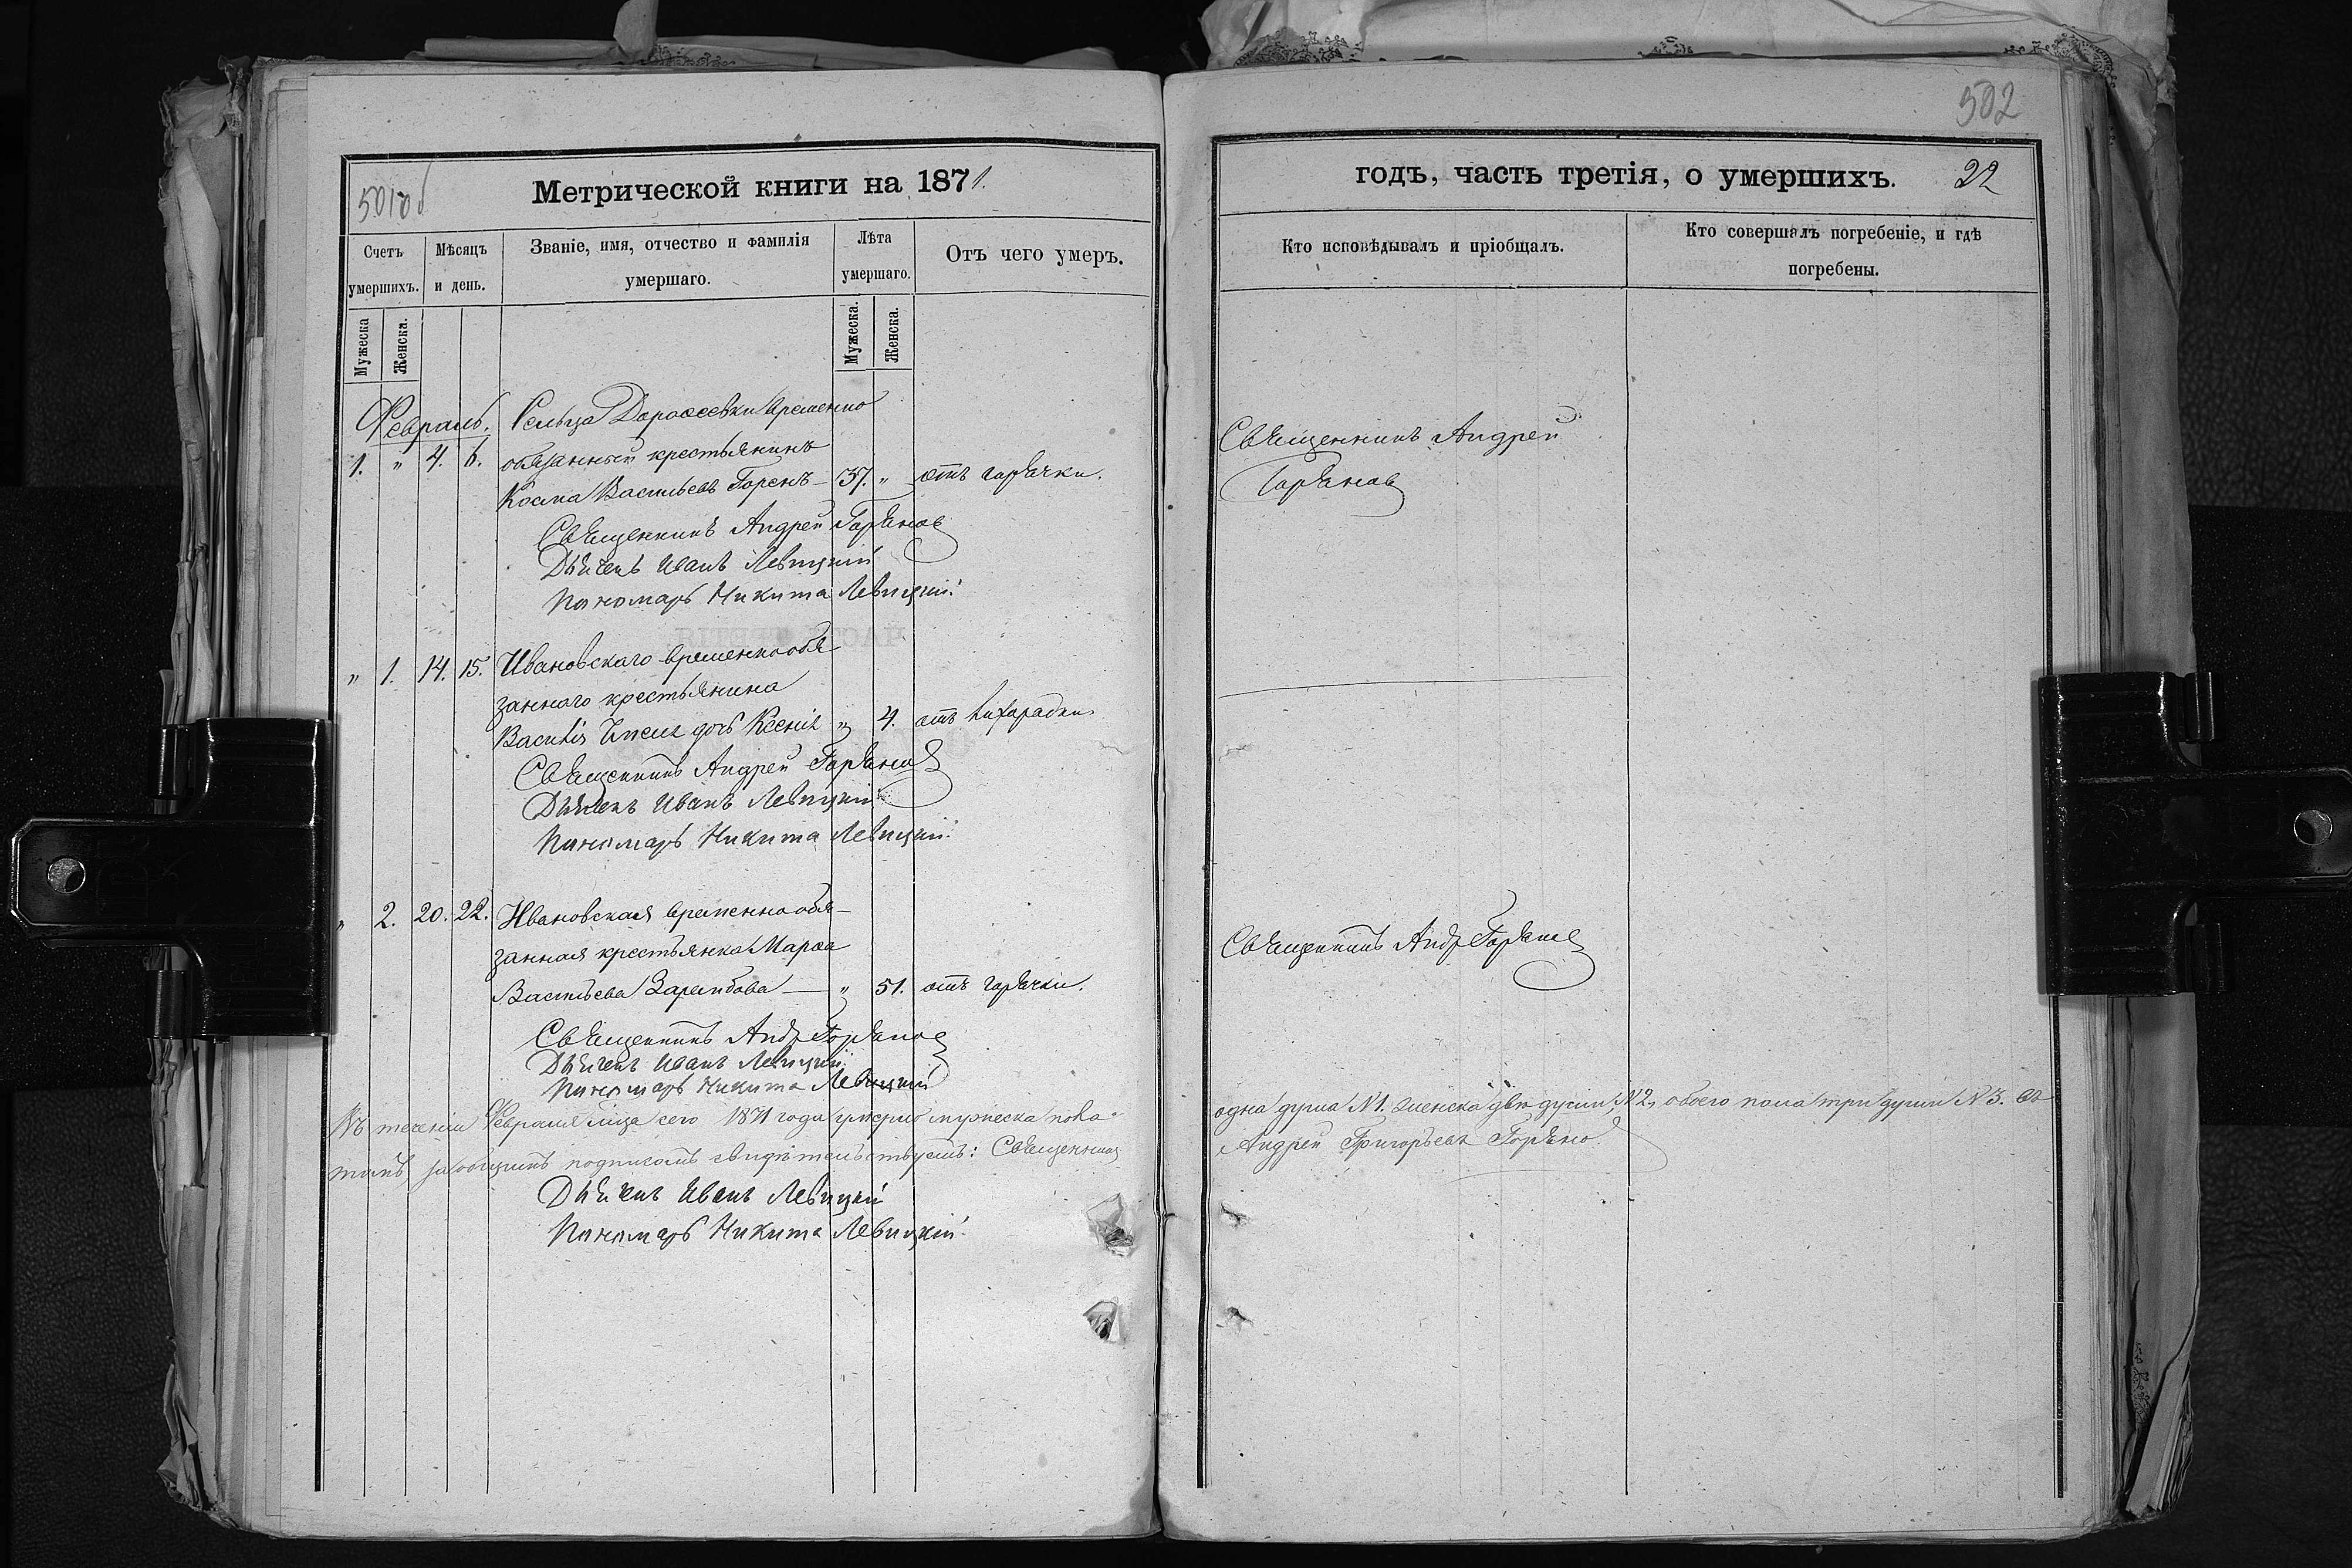 502
501об
Метрической книги на 1871.
годъ, часть третія, о умершихъ. 22
Счетъ умершихъ.
Мѣсяцъ и день.
Званіе, имя, отчество и фамилія умершаго.
Лѣта умершаго.
Отъ чего умеръ.
Кто исповѣдывалъ и пріобщалъ.
Кто совершалъ погребеніе, и гдѣ погребены.
Мужеска
Женска.
Мужеска.
Женска.
Февраль. Сельца Дорофеевки временно
1. " 4. 6. обязанный крестьянинъ
Косма Васильевъ Горенъ — 37. " отъ горячки.
Священникъ Андрей
Горяновъ
Священникъ Андрей Горяновъ
Дьячекъ Иванъ Левицкій
Пономарь Никита Левицкій.
" 1. 14. 15. Ивановскаго временнообя
заннаго крестьянина
Василія дочь Ксенія " 4. отъ лихорадки
Священникъ Андрей Горяновъ
Дьячекъ Иванъ Левицкій
Пономарь Никита Левицкій.
" 2. 20. 22. Ивановская временнообя-
занная крестьянка Марѳа
Васильева — " 51. отъ горячки.
Священникъ Андр Горяновъ
Священникъ Андр Горяновъ
Дьячекъ Иванъ Левицкій
Пономарь Никита Левицкій
Въ теченіи Февраля мца сего 1871 года умерло мужеска пола одна душа N 1. женска двѣ души, N 2, обоего пола три души N 3. въ
подписомъ свидѣтельствуемъ: Священникъ Андрей Григорьевъ Горяновъ
Дьячекъ Иванъ Левицкій
Пономарь Никита Левицкій.